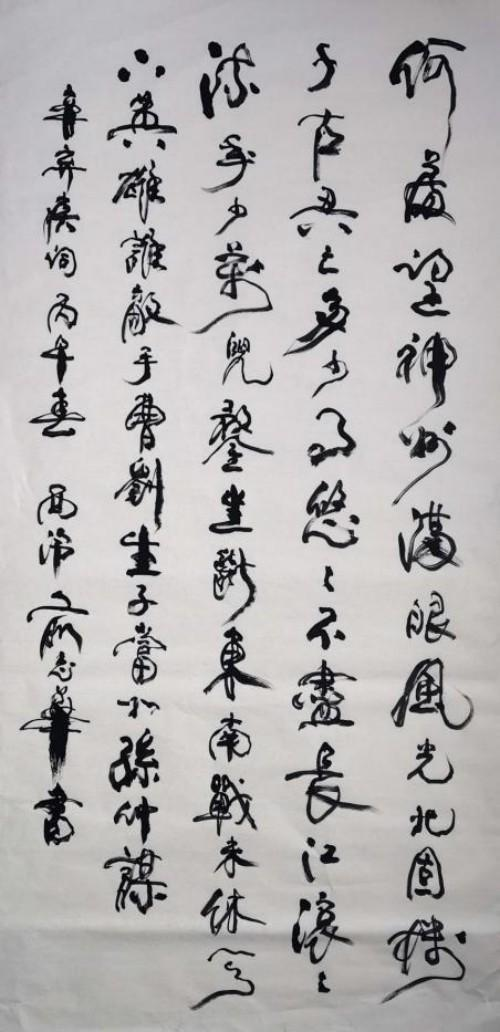 何處望神州滿眼風光北固樓
千古興亡多少事悠〻不盡長江滾〻
流年少萬兜鍪坐斷東南戰未休天
下英雄誰敵手曹劉生子當如孫仲謀
辛弃疾詞 丙午春 西泠 志華書